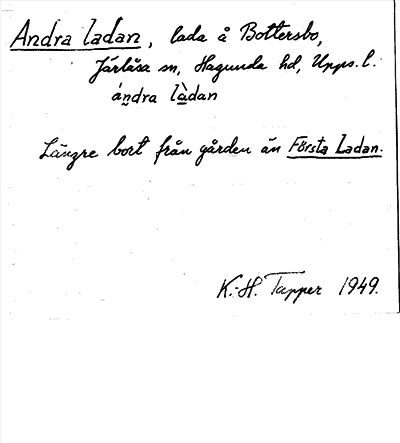 Andra Ladan, lada å Bottersbo,
Järlåsa sn, Hagunda hd, Upps. l.
ándra làdan
Längre bort från gården än Första Ladan.
K.-H. Tapper 1949.